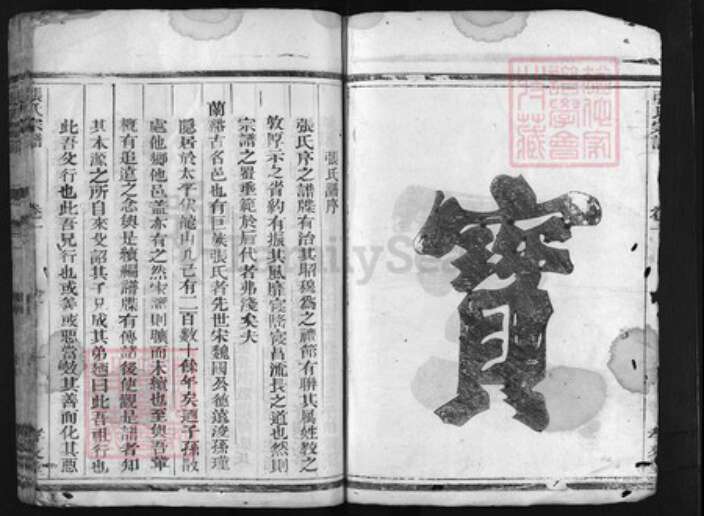 寶
張氏宗譜
卷一
張氏譜序
張氏序之譜牒有治其昭穆為之禮節有聯其屬姓教之
敦厚示之省約有振其風靡寖降寖昌流長之道也然則
宗譜之置垂範於后代者弗淺矣夫
蘭谿古名邑也有巨族張氏者先世宋魏國公德遠浚孫瑾
隱居於太平伏龍山几已有二百數十餘年矣迺子孫散
處他鄉他邑盖亦有之然宋譜則曠而未續也至與吾輩
概有追遠之念與是續編譜牒有傳諸後使觀是譜者知
其本源之所自來父詔其子兄戒其弟迺曰此吾祖行也
此吾父行也此吾兄行也或善或惡當效其善而化其惡
張氏宗譜
卷一